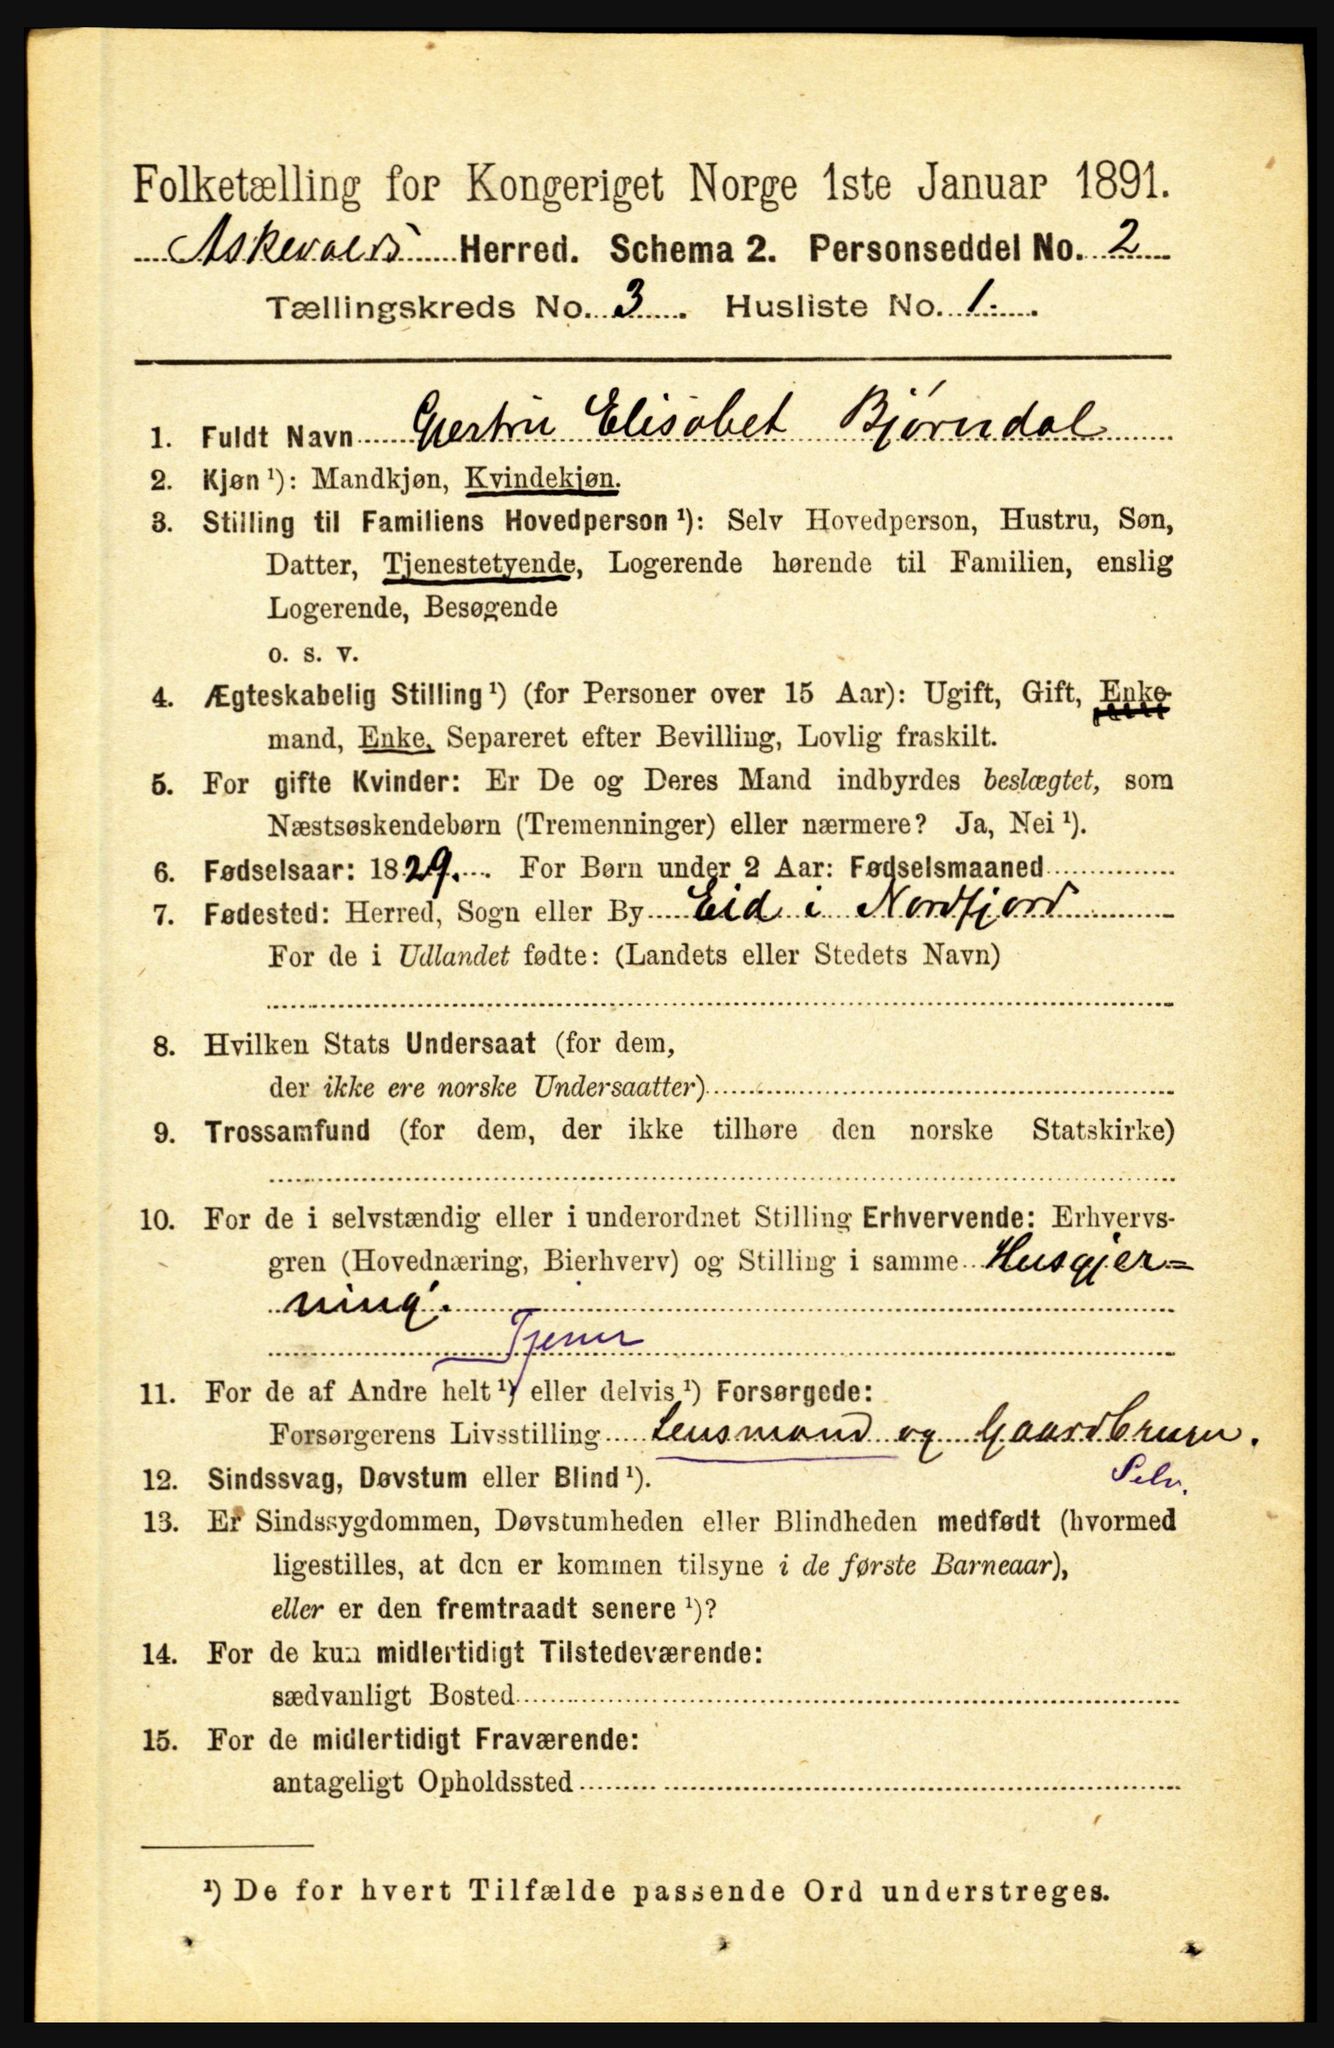 Folketælling for Kongeriget Norge 1ste Januar 1891.
Askevolds Herred. Schema 2. Personseddel No. 2
Tællingskreds No. 3. Husliste No. 1.
1. Fuldt Navn Gjertru Elisabet Bjørndal
2. Kjøn ¹): Mandkjøn, Kvindekjøn.
3. Stilling til Familiens Hovedperson ¹): Selv Hovedperson, Hustru, Søn,
Datter, Tjenestetyende, Logerende hørende til Familien, enslig
Logerende, Besøgende
o. s. v.
4. Ægteskabelig Stilling ¹) (for Personer over 15 Aar): Ugift, Gift, Enke-
mand, Enke, Separeret efter Bevilling, Lovlig fraskilt.
5. For gifte Kvinder: Er De og Deres Mand indbyrdes beslægtet, som
Næstsøskendebørn (Tremenninger) eller nærmere? Ja, Nei ¹).
6. Fødselsaar: 1829. For Børn under 2 Aar: Fødselsmaaned
7. Fødested: Herred, Sogn eller By Eid i Nordfjord
For de i Udlandet fødte: (Landets eller Stedets Navn)
8. Hvilken Stats Undersaat (for dem,
der ikke ere norske Undersaatter)
9. Trossamfund (for dem, der ikke tilhøre den norske Statskirke)
10. For de i selvstændig eller i underordnet Stilling Erhvervende: Erhvervs-
gren (Hovednæring, Bierhverv) og Stilling i samme Husgjer=
ning.
Tjener
11. For de af Andre helt ¹) eller delvis ¹) Forsørgede:
Forsørgerens Livsstilling Lensmand og Gaardbruger.
12. Sindssvag, Døvstum eller Blind ¹). Selv.
13. Er Sindssygdommen, Døvstumheden eller Blindheden medfødt (hvormed
ligestilles, at den er kommen tilsyne i de første Barneaar),
eller er den fremtraadt senere ¹)?
14. For de kun midlertidigt Tilstedeværende:
sædvanligt Bosted
15. For de midlertidigt Fraværende:
antageligt Opholdssted
¹) De for hvert Tilfælde passende Ord understreges.